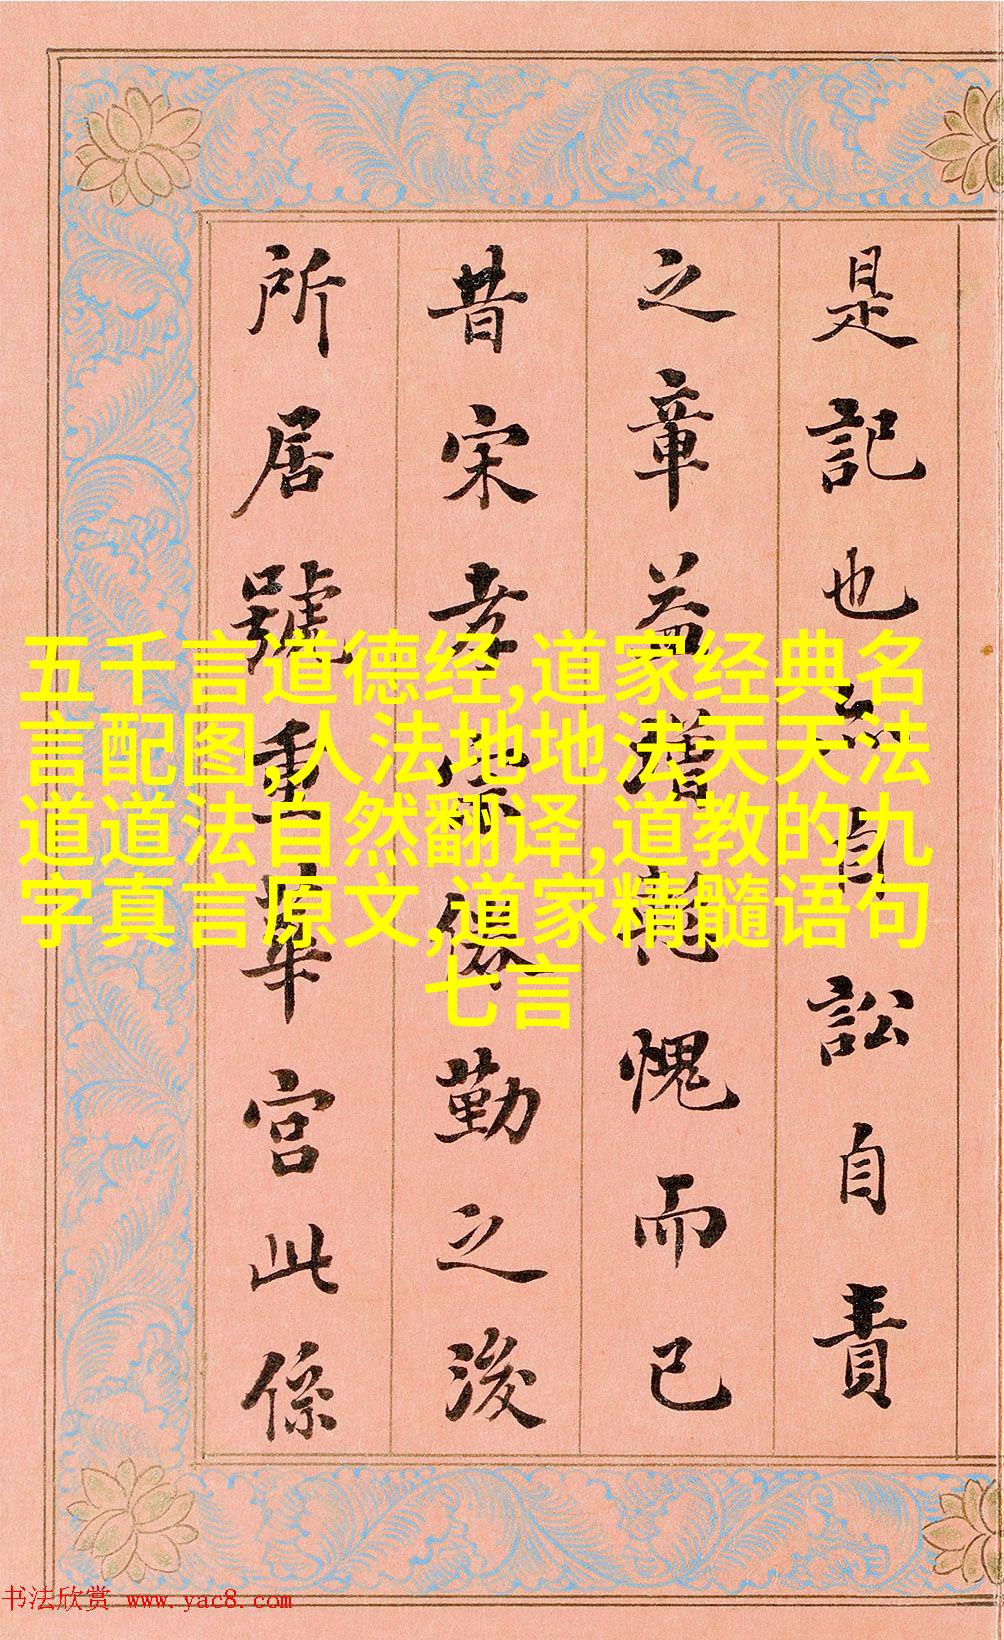 是記也亦自訟自責
之章益增慙愧而已
昔宋孝宗倦勤之後
所居號重華宮此係
五千言道德经,道家经典名
言配图,人法地地法天天法
道道法自然翻译,道教的九
字真言原文,道家精髓语句
七言
书法欣赏 www.yac8.com